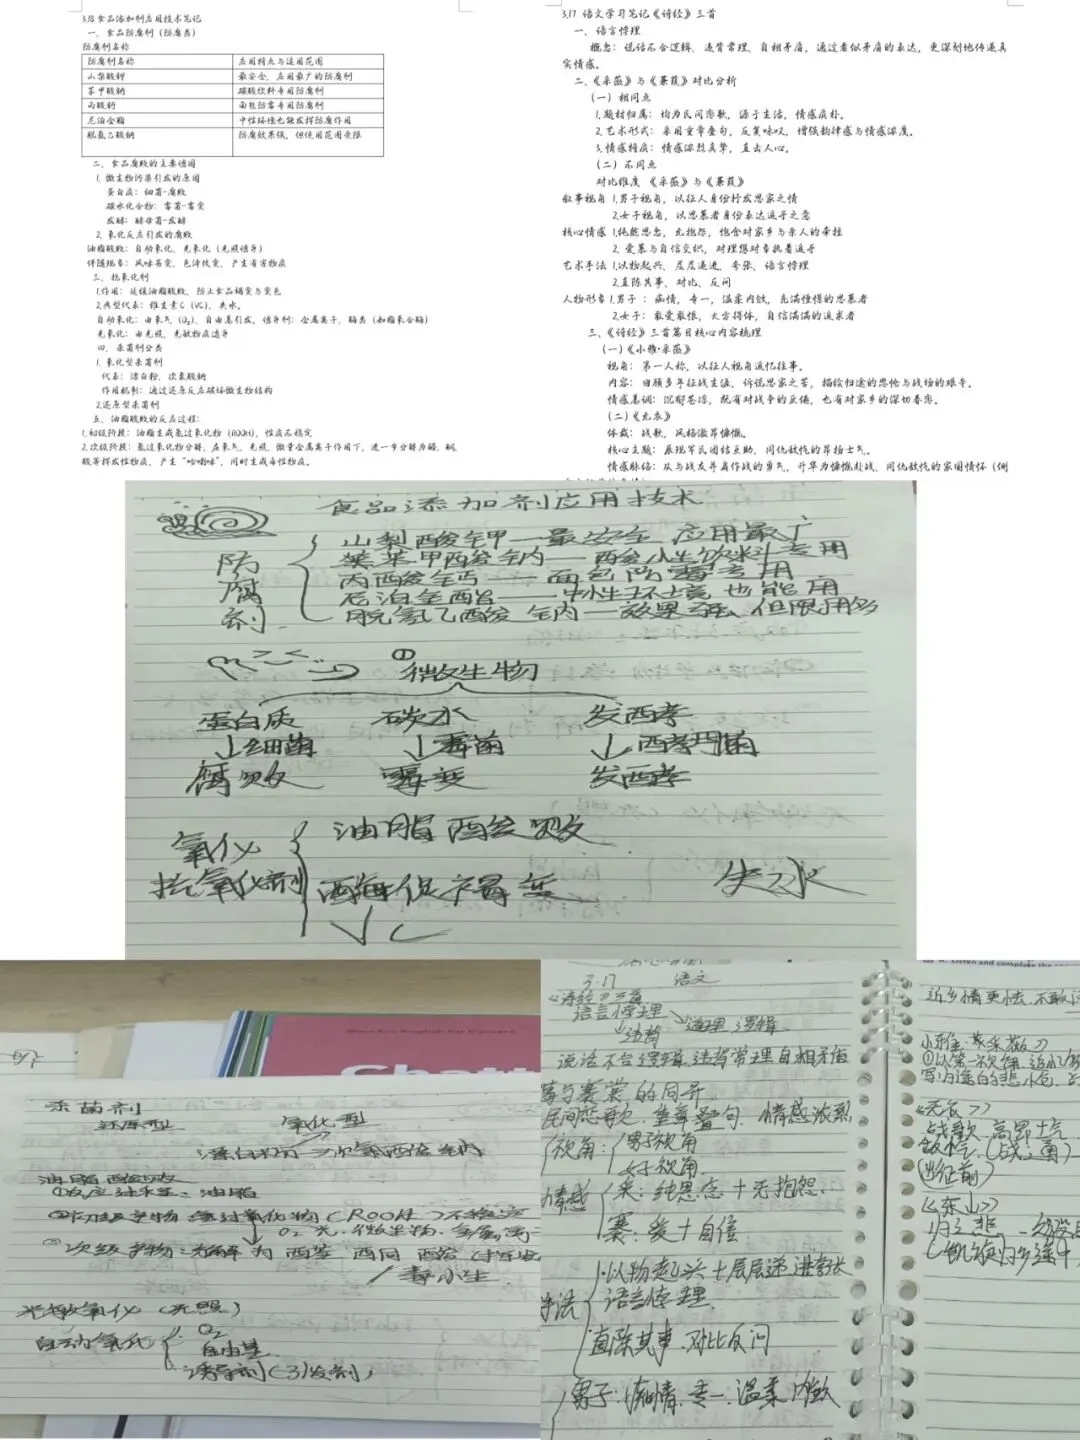 3.18 食品添加剂应用技术笔记
一、食品防腐剂（防腐类）
防腐剂名称
防腐剂名称 应用特点与适用范围
山梨酸钾 最安全，应用最广的防腐剂
苯甲酸钠 碳酸饮料专用防腐剂
丙酸钙 面包防霉专用防腐剂
尼泊金酯 中性环境也能发挥防腐作用
脱氢乙酸钠 防腐效果强，但使用范围受限
二、食品腐败的主要诱因
1. 微生物污染引发的原因
蛋白质：细菌-腐败
碳水化合物：霉菌-霉变
发酵：酵母菌-发酵
2. 氧化反应引发的腐败
油脂酸败：自动氧化、光氧化（光照诱导）
伴随现象：风味劣变、色泽改变、产生有害物质
三、抗氧化剂
1.作用：延缓油脂酸败，防止食品褐变与变色
2.典型代表：维生素C（VC）、失水。
自动氧化：由氧气（O₂）、自由基引发，诱导剂：金属离子、酶类（如脂氧合酶）
光氧化：由光照、光敏物质诱导
四、杀菌剂分类
1. 氧化型杀菌剂
代表：漂白粉、次氯酸钠
作用机制：通过还原反应破坏微生物结构
2.还原型杀菌剂
五、油脂酸败的反应过程：
1.初级阶段：油脂生成氢过氧化物（ROOH），性质不稳定
2.次级阶段：氢过氧化物分解，在氧气、光照、微量金属离子作用下，进一步分解为醛、酮、
酸等挥发性物质，产生“哈喇味”，同时生成毒性物质。
3.17 语文学习笔记《诗经》三首
一、语言悖理
概念：说话不合逻辑、违背常理、自相矛盾，通过看似矛盾的表达，更深刻地传递真
实情感。
二、《采薇》与《蒹葭》对比分析
（一）相同点
1.题材归属：均为民间恋歌，源于生活，情感质朴。
2.艺术形式：采用重章叠句，反复咏叹，增强韵律感与情感浓度。
3.情感特质：情感浓烈真挚，直击人心。
（二）不同点
对比维度 《采薇》与《蒹葭》
叙事视角 1.男子视角，以征人身份抒发思家之情
2.女子视角，以思慕者身份表达追寻之意
核心情感 1.纯然思念，无抱怨，饱含对家乡与亲人的牵挂
2. 爱慕与自信交织，对理想对象执着追寻
艺术手法 1.以物起兴、层层递进、夸张、语言悖理
2.直陈其事、对比、反问
人物形象 1.男子：痴情，专一，温柔内敛，充满憧憬的思慕者
2.女子：敢爱敢恨，大方得体，自信满满的追求者
三、《诗经》三首篇目核心内容梳理
（一）《小雅·采薇》
视角：第一人称，以征人视角追忆往事。
内容：回顾多年征战生涯，诉说思家之苦，描绘归途的悲怆与战场的艰辛。
情感基调：沉郁苍凉，既有对战争的厌倦，也有对家乡的深切眷恋。
（二）《无衣》
体裁：战歌，风格激昂慷慨。
核心主题：展现军民团结互助、同仇敌忾的昂扬士气。
情感脉络：从与战友并肩作战的勇气，升华为慷慨赴战、同仇敌忾的家国情怀（侧
食品添加剂应用技术
防腐剂
山梨酸钾—最安全 应用最广
苯甲酸钠—酸性饮料专用
丙酸钙—面包防霉专用
尼泊金酯—中性环境也能用
脱氢乙酸钠—效果强、但限用多
①微生物
蛋白质 碳水 发酵
↓细菌 ↓霉菌 ↓酵母菌
腐败 霉变 发酵
氧化 油脂酸败
抗氧化剂 酶促褐变 失水
VC
杀菌剂
还原型 氧化型
漂白粉 次氯酸钠
油脂酸败
①反应过程：油脂
①初级产物 氢过氧化物（ROOH）不稳定
O₂ 光、微生物、金属离子
②次级产物：分解为 醛 酮 酸
毒小生
光敏氧化（光照）
自动氧化 O₂
自由基
诱导剂（引发剂）
3.17 语文
《诗经》三首
语言悖理
道理、逻辑
说话不合逻辑，违背常理自相矛盾
与蹇裳的同异
民间恋歌、重章叠句、情感浓烈
视角：男子视角
女子视角
情感 采：纯思念+无抱怨
蹇：爱+自信
手法 以物起兴+层层递进夸张
语言悖理
直陈其事、对比反问
男子：痴情、专一、温柔内敛
近乡情更怯，不敢
小雅·采薇》
《无衣》
战歌 高昂士气
（战；勇）
（出征前）
《东山》
归之悲
Chatt